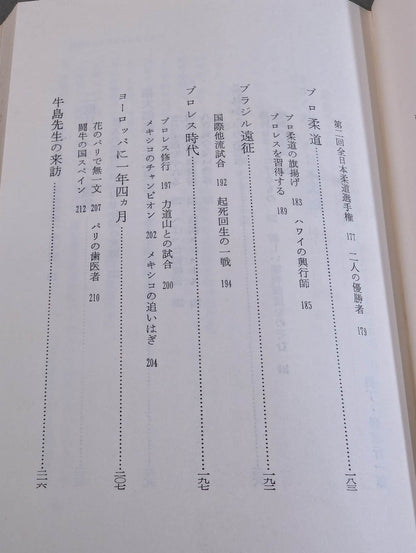 第二回全日本柔道選手権 177 二人の優勝者 179
プロ柔道……一八三
プロ柔道の旗揚げ 183 ハワイの興行師 185
プロレスを習得する 189
ブラジル遠征……一九二
国際他流試合 192 起死回生の一戦 194
プロレス時代……一九七
プロレス修行 197 力道山との試合 200
メキシコのチャンピオン 202 メキシコの追いはぎ 204
ヨーロッパに一年四ヵ月……二〇七
花のパリで無一文 207 パリの歯医者 210
闘牛の国スペイン 212
牛島先生の来訪……二一六